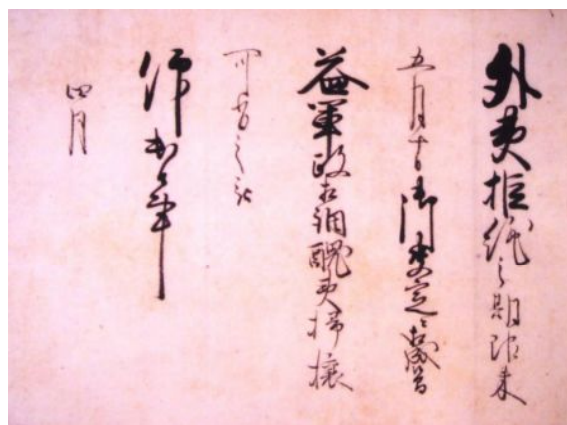 外夷拒絶之期限来
五月十日御決定ニ相成候間
益軍政相調醜夷掃攘
可有之被
仰出候事
四月